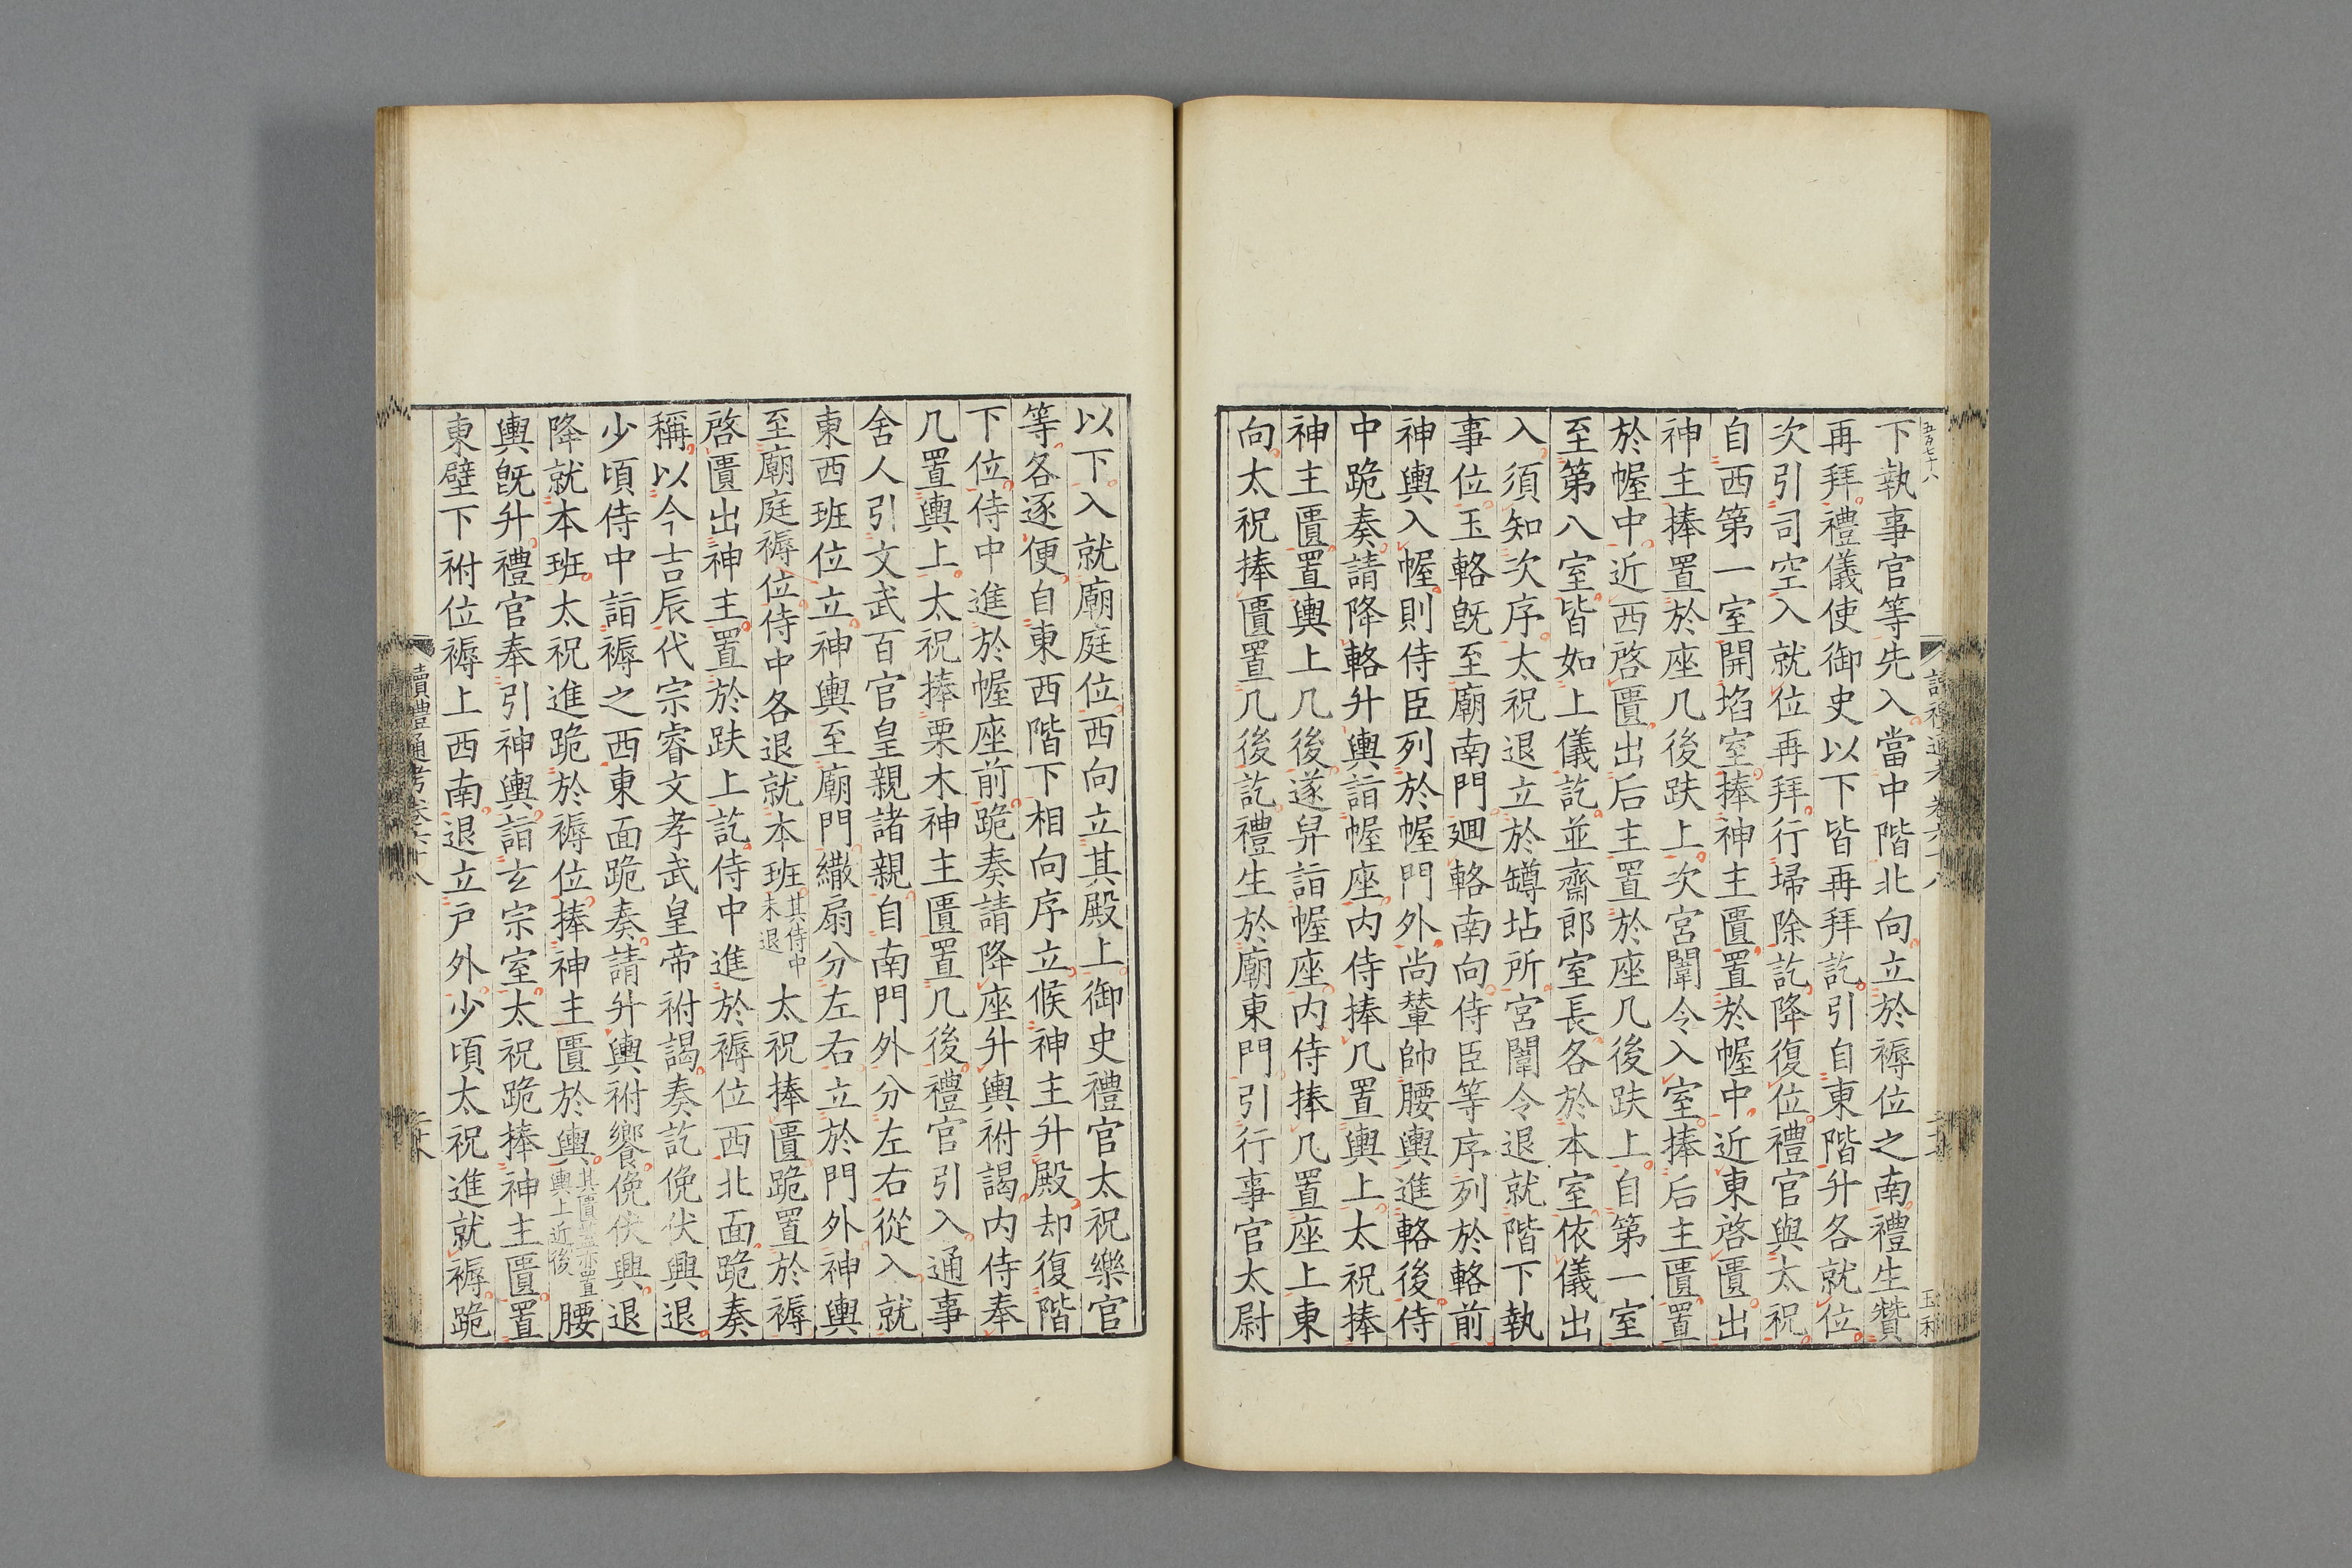 下執事官等先入當中階北向立於褥位之南禮生贊
再拜禮儀使御史以下皆再拜訖引自東階升各就位
次引司空入就位再拜行埽除訖降復位禮官與太祝
自西第一室開埳室捧神主匱置於幄中近東啓匱出
神主捧置於座几後趺上次宮闈令入室捧后主匱置
於幄中近西啓匱出后主置於座几後趺上自第一室
至第八室皆如上儀訖並齋郎室長各於本室依儀出
入須知次序太祝退立於罇坫所宮闈令退就階下執
事位玉輅旣至廟南門廻輅南向侍臣等序列於輅前
神輿入幄則侍臣列於幄門外尚輦帥腰輿進輅後侍
中跪奏請降輅升輿詣幄座內侍捧几置輿上太祝捧
神主匱置輿上几後遂舁詣幄座內侍捧几置座上東
向太祝捧匱置几後訖禮生於廟東門引行事官太尉
以下入就廟庭位西向立其殿上御史禮官太祝樂官
等各逐便自東西階下相向序立候神主升殿却復階
下位侍中進於幄座前跪奏請降座升輿祔謁內侍奉
几置輿上太祝捧栗木神主匱置几後禮官引入通事
舍人引文武百官皇親諸親自南門外分左右從入就
東西班位立神輿至廟門繖扇分左右立於門外神輿
至廟庭褥位侍中各退就本班其侍中未退太祝捧匱跪置於褥
啓匱出神主置於趺上訖侍中進於褥位西北面跪奏
稱以今吉辰代宗睿文孝武皇帝祔謁奏訖俛伏興退
少頃侍中詣褥之西東面跪奏請升輿祔饗俛伏興退
降就本班太祝進跪於褥位捧神主匱於輿其匱蓋亦置輿上近後腰
輿旣升禮官奉引神輿詣玄宗室太祝跪捧神主匱置
東壁下祔位褥上西南退立戶外少頃太祝進就褥跪
讀禮通考卷六十八